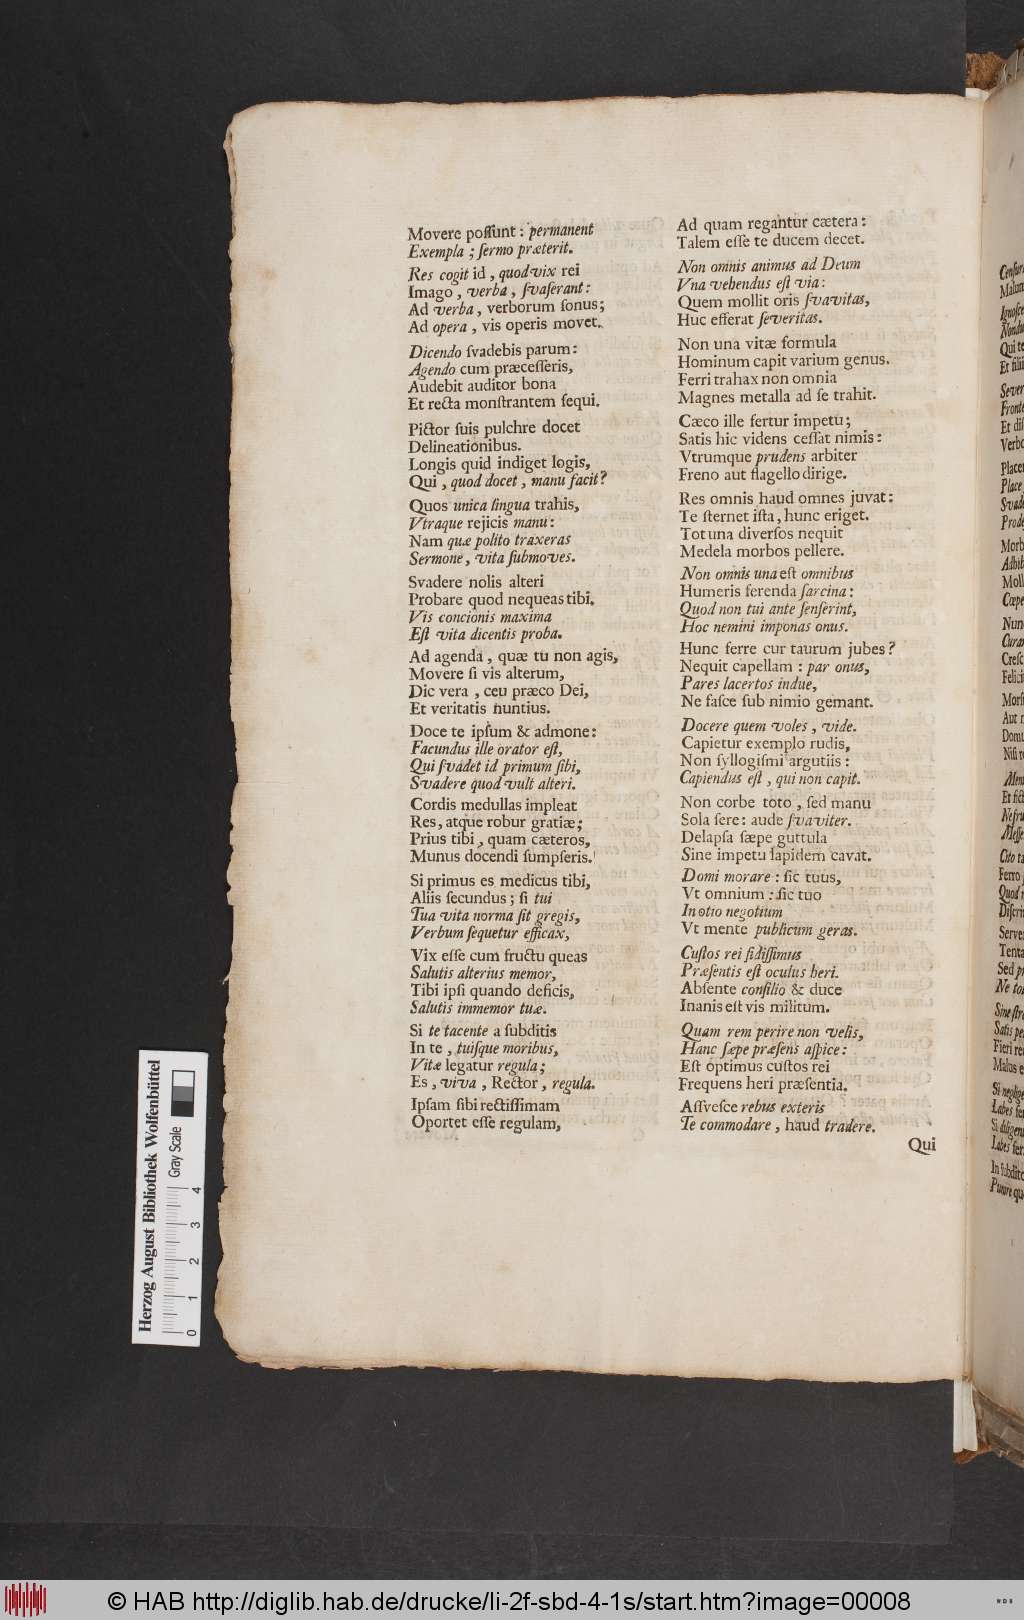 Movere poſſunt : permanent
Exempla ; ſermo præterit.
Res cogit id , quod vix rei
Imago , verba , ſvaſerant :
Ad verba , verborum ſonus ;
Ad opera , vis operis movet.
Dicendo ſvadebis parum :
Agendo cum præceſſeris,
Audebit auditor bona
Et recta monſtrantem ſequi.
Pictor ſuis pulchre docet
Delineationibus.
Longis quid indiget logis,
Qui , quod docet , manu facit ?
Quos unica lingua trahis,
Vtraque rejicis manu :
Nam quæ polito traxeras
Sermone , vita ſubmoves.
Svadere nolis alteri
Probare quod nequeas tibi.
Vis concionis maxima
Eſt vita dicentis proba.
Ad agenda , quæ tu non agis,
Movere ſi vis alterum,
Dic vera , ceu præco Dei,
Et veritatis nuntius.
Doce te ipſum & admone :
Facundus ille orator eſt,
Qui ſvadet id primum ſibi,
Svadere quod vult alteri.
Cordis medullas impleat
Res, atque robur gratiæ ;
Prius tibi , quam cæteros,
Munus docendi ſumpſeris.
Si primus es medicus tibi,
Aliis ſecundus ; ſi tui
Tua vita norma ſit gregis,
Verbum ſequetur efficax,
Vix eſſe cum fructu queas
Salutis alterius memor,
Tibi ipſi quando deficis,
Salutis immemor tuæ.
Si te tacente a ſubditis
In te , tuiſque moribus,
Vitæ legatur regula ;
Es , viva , Rector , regula.
Ipſam ſibi rectiſſimam
Oportet eſſe regulam,
Ad quam regantur cætera :
Talem eſſe te ducem decet.
Non omnis animus ad Deum
Vna vehendus eſt via :
Quem mollit oris ſvavitas,
Huc efferat ſeveritas.
Non una vitæ formula
Hominum capit varium genus.
Ferri trahax non omnia
Magnes metalla ad ſe trahit.
Cæco ille fertur impetu ;
Satis hic videns ceſſat nimis :
Vtrumque prudens arbiter
Freno aut flagello dirige.
Res omnis haud omnes juvat :
Te ſternet iſta , hunc eriget.
Tot una diverſos nequit
Medela morbos pellere.
Non omnis una eſt omnibus
Humeris ferenda ſarcina :
Quod non tui ante ſenſerint,
Hoc nemini imponas onus.
Hunc ferre cur taurum jubes ?
Nequit capellam : par onus,
Pares lacertos indue,
Ne faſce ſub nimio gemant.
Docere quem voles , vide.
Capietur exemplo rudis,
Non ſyllogiſmi argutiis :
Capiendus eſt , qui non capit.
Non corbe toto , ſed manu
Sola ſere : aude ſvaviter.
Delapſa ſæpe guttula
Sine impetu lapidem cavat.
Domi morare : ſic tuus,
Vt omnium : ſic tuo
In otio negotium
Vt mente publicum geras.
Cuſtos rei fidiſſimus
Præſentis eſt oculus heri.
Abſente conſilio & duce
Inanis eſt vis militum.
Quam rem perire non velis,
Hanc ſæpe præſens aſpice :
Eſt optimus cuſtos rei
Frequens heri præſentia.
Aſſveſce rebus exteris
Te commodare , haud tradere.
Qui
Herzog August Bibliothek Wolfenbüttel
Gray Scale
0 1 2 3 4
© HAB http://diglib.hab.de/drucke/li-2f-sbd-4-1s/start.htm?image=00008